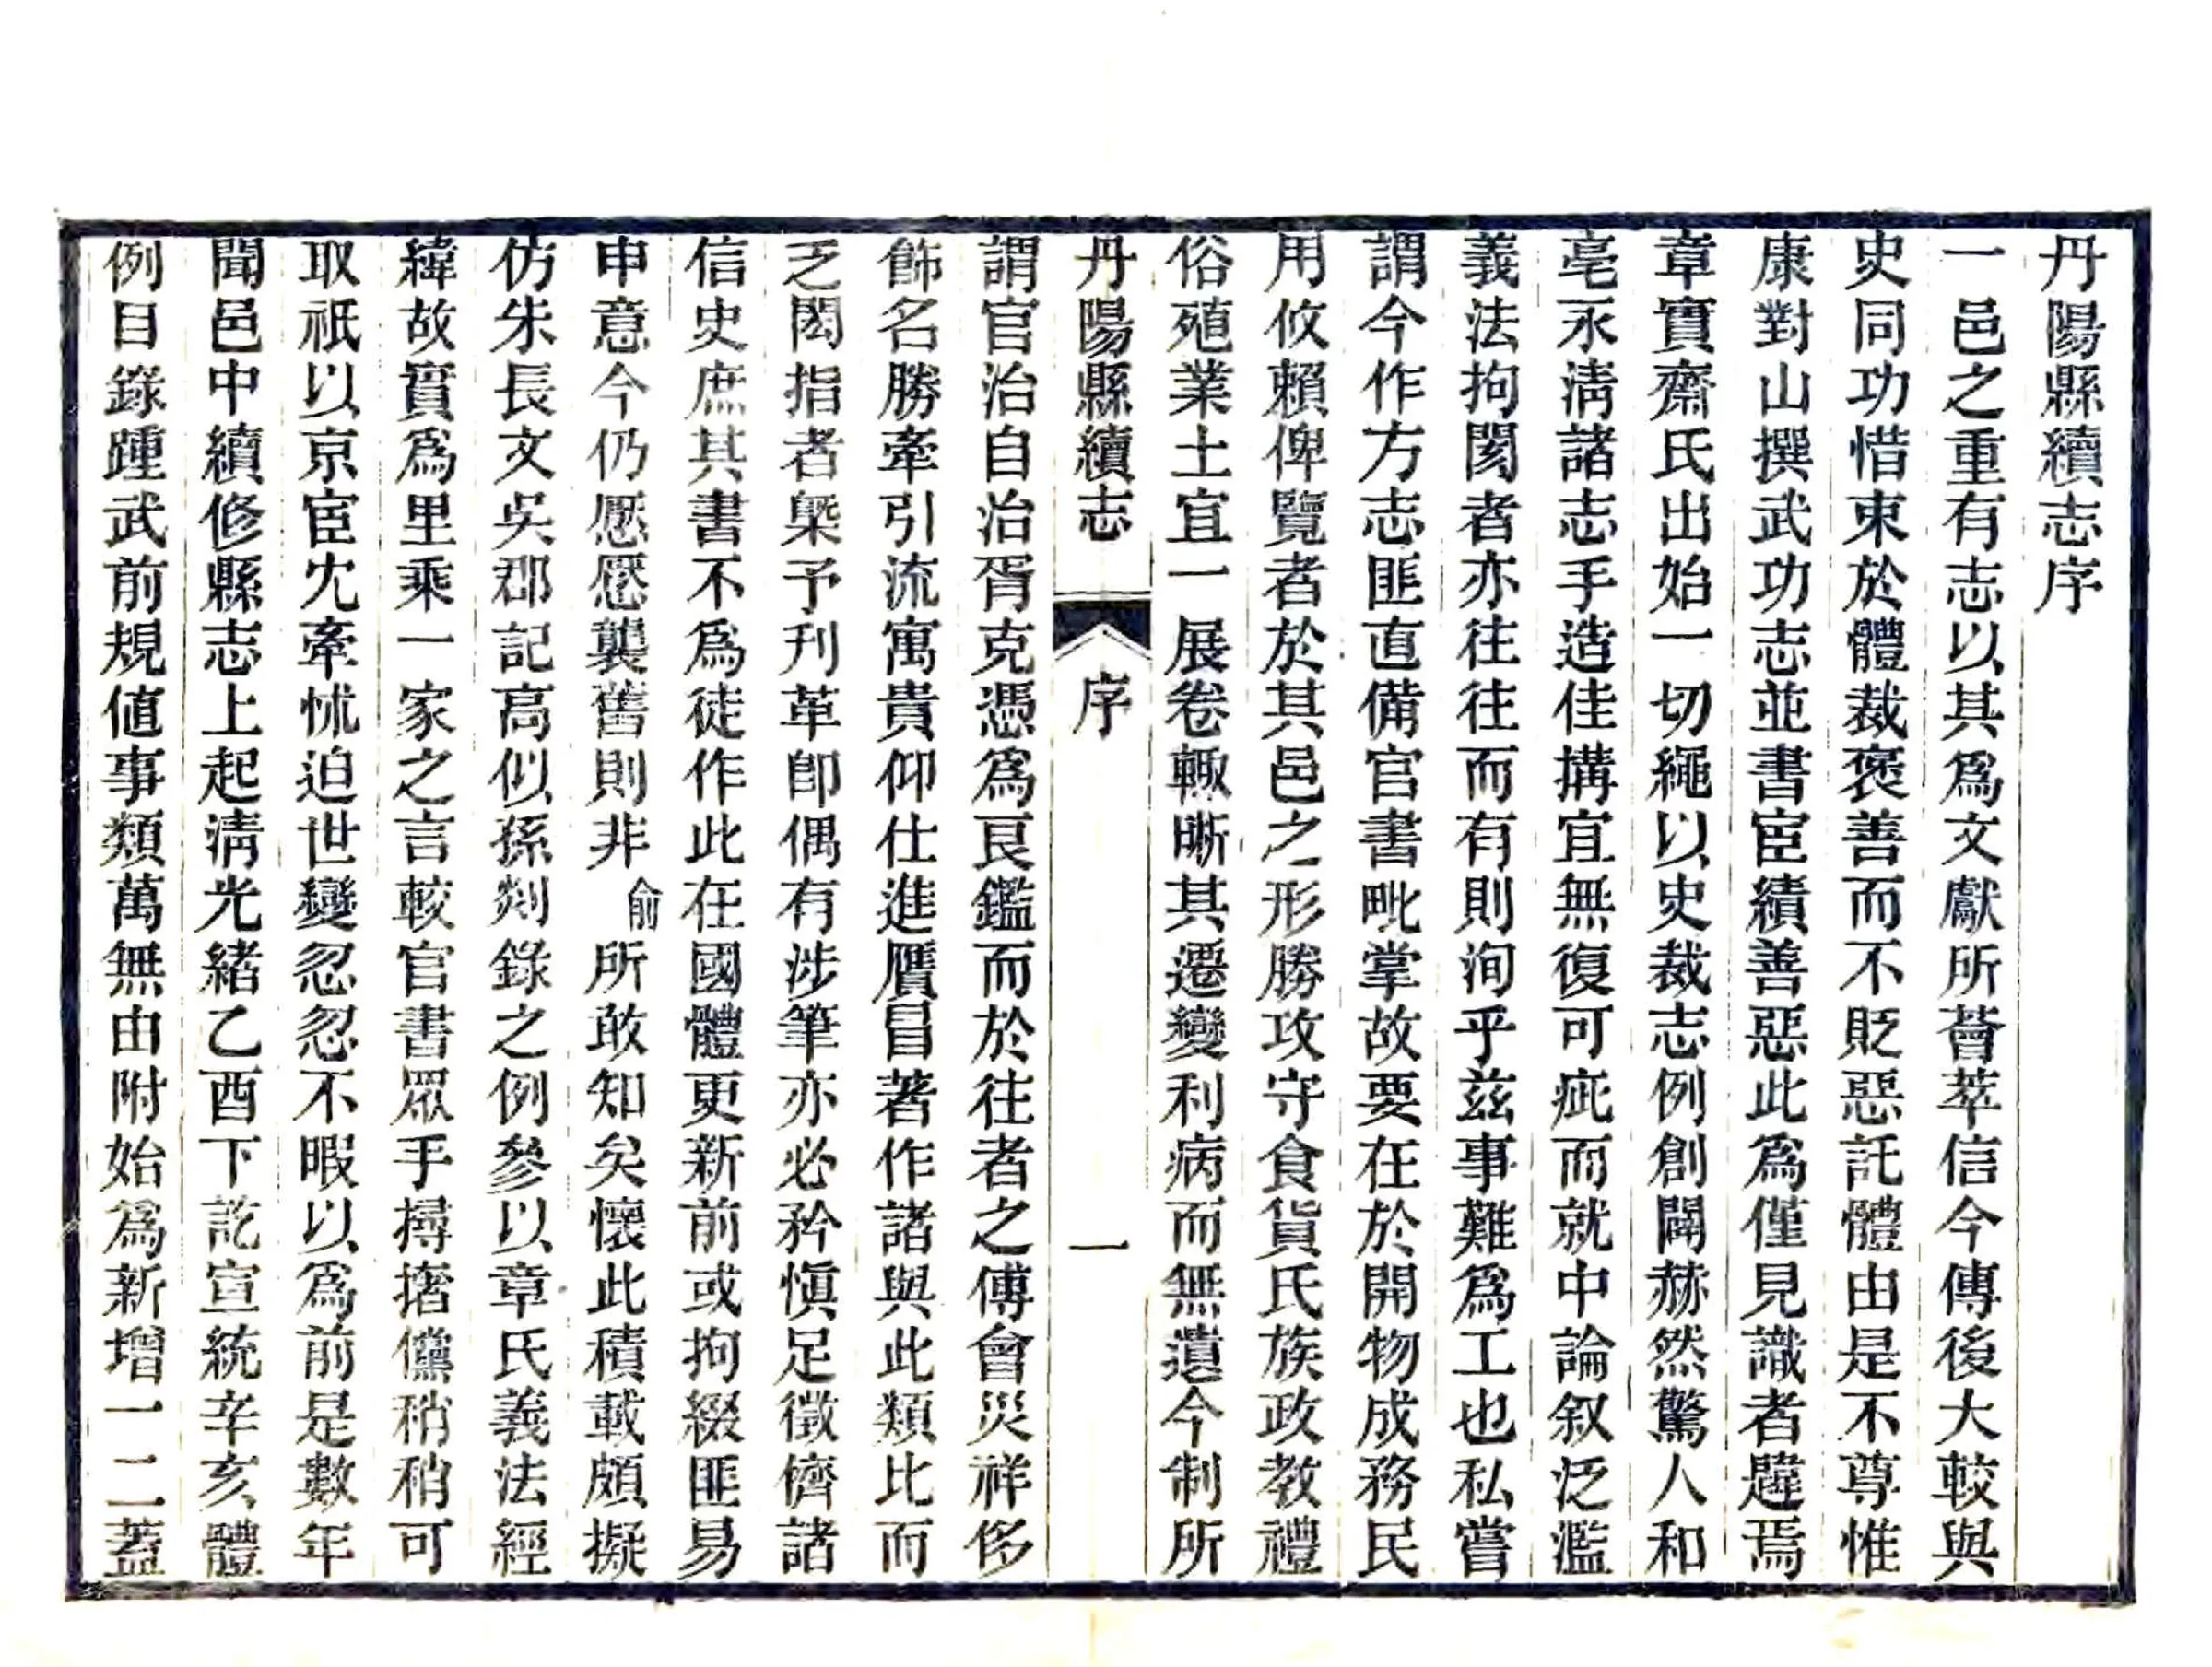 丹陽縣續志序
一邑之重有志以其爲文獻所薈萃信今傳後大較與
史同功惜束於體裁褒善而不貶惡託體由是不尊惟
康對山撰武功志並書宦績善惡此爲僅見識者韙焉
章實齋氏出始一切繩以史裁志例創闢赫然驚人和
亳永淸諸志手造佳搆宜無復可疵而就中論叙泛濫
義法拘閡者亦往往而有則洵乎茲事難爲工也私嘗
謂今作方志匪直備官書毗掌故要在於開物成務民
用攸賴俾覽者於其邑之形勝攻守食貨氏族政教禮
俗殖業土宜一展卷輒晣其遷變利病而無遺今制所
丹陽縣續志 序 一
謂官治自治胥克憑爲艮鑑而於往者之傅會災祥侈
飾名勝牽引流寓貴仰仕進贋冒著作諸與此類比而
乏閎指者槩予刋革卽偶有涉筆亦必矜愼足徵儕諸
信史庶其書不爲徒作此在國體更新前或拘綴匪易
申意今仍愿愿襲舊則非俞所敢知矣懷此積載頗擬
仿朱長文吳郡記高似孫剡錄之例參以章氏義法經
緯故實爲里乘一家之言較官書眾手撏撦儻稍稍可
取祇以京宦冘牽怵迫世變忽忽不暇以爲前是數年
聞邑中續修縣志上起淸光緒乙酉下訖宣統辛亥體
例目錄踵武前規値事類萬無由附始爲新增一二蓋